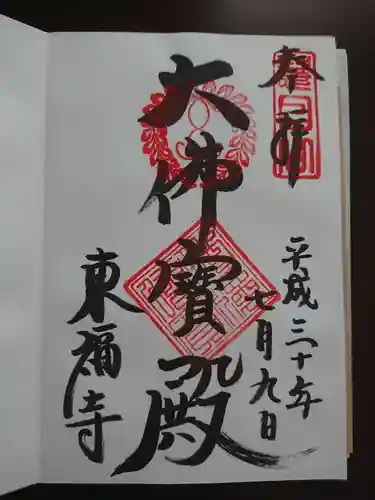 奉拝
平成三十年
七月九日
大佛寳殿
東福寺